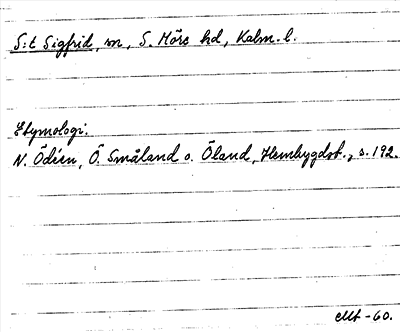 S:t Sigfrid, sn, S. Möre hd, Kalm. l.
Etymologi.
N. Ödéen, Ö. Småland o. Öland, Hembygdst., s. 192.
-60.